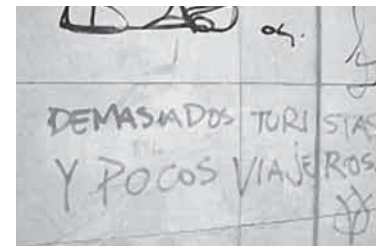 oh.
DEMASIADOS TURISTAS
Y POCOS VIAJEROS.